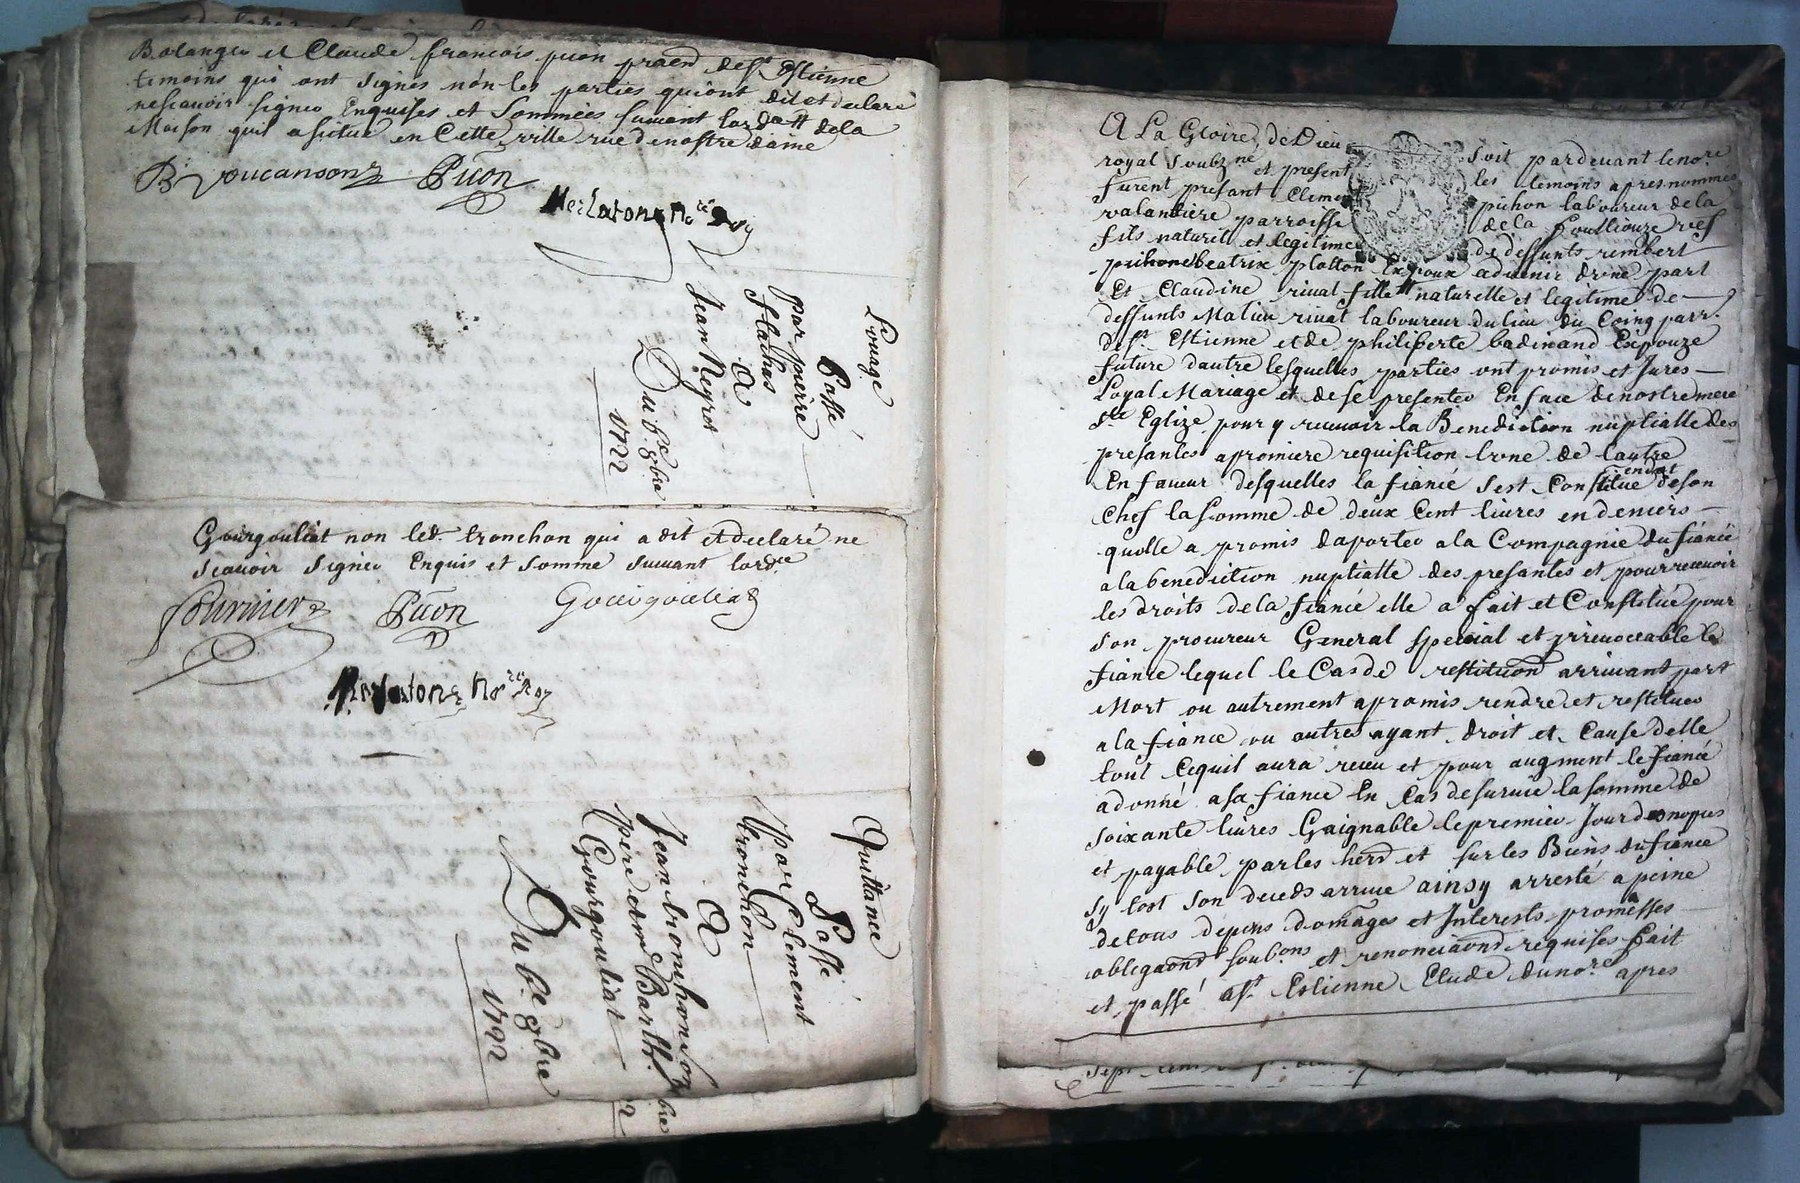 Bolanger et Claude francois puon praend de St Estienne
temoins qui ont signes non les parties quiont dit et declaré
nescavoir signer Enquises et Sommées suivant lord dela
Maison quil a scitué en Cette ville rue denostre dame
B Voucanson Puon
Merlaton Nore Roy
Louage
Passé
par pierre
Flachas
A
Jean Neyret
Du 6e 8bre
1722
Gourgouliat non led tronchon qui a dit et declaré ne
scavoir signer Enquis et sommé suivant lordce
fournier Puon Gourgouliat
Merlaton Nore Roy
Quittance
Passé
par Clement
tronchon
A
Jean tronchon son
père et me Barth.
Gourgouliat
Du 6e 8bre
1722
A La Gloire de Dieu soit pardevant lenore
royal soubzne et present les temoins apres nommes
furent presant Clement pichon laboureur de la
valantiere parroisse de la foulliouze
fils naturel et legitime de deffunts rembert
pichon beatrix platton Expoux advenir dune part
Et Claudine rivat fille naturelle et legitime de
deffunts Matieu rivat laboureur du lieu du Coing parr.
de St Estienne et de philiberte badinand Expouze
future dautre lesquelles parties ont promis et Jures
Loyal Mariage et de se presenter En face de nostre mere
ste Eglize pour y recevoir la Benediction nuptialle des
presantes a premiere requisition lune de lautre
En faveur desquelles la fiancé sest Constitué en dot de son
Chef la somme de deux Cent livres en deniers
quelle a promis daporter a la Compagnie du fiancé
a la benediction nuptialle des presantes et pour recevoir
les droits de la fiancé elle a fait et Constitué pour
son procureur General special et irrevocable le
fiancé lequel le Cas de restitution arrivant part
Mort ou autrement a promis rendre et restituer
a la fiance ou autres ayant droit et Cause delle
tout Cequil aura receu et pour augment le fiancé
a donné a sa fiance En Cas de survie la somme de
soixante livres Gaignable le premier Jour des nopces
et payable par les herd et sur les Biens du fiancé
sy tost son deceds arrivé ainsy arresté a peine
de tous depens domages et Interests promesses
obligaond soubons et renonciaond requises fait
et passé a St Estienne Etude du nore apres